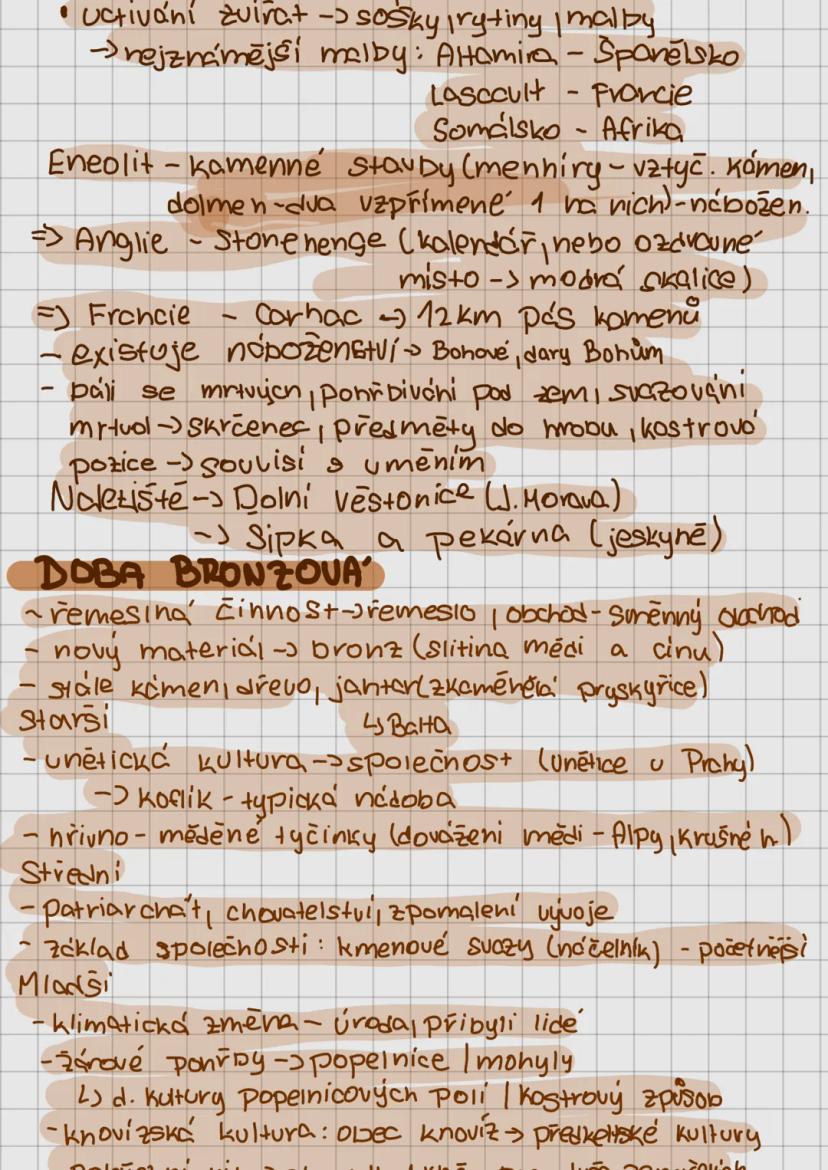 • uctívání zvířat -> sošky, rytiny, malby
-> nejznámější malby: Altamira - Španělsko
Lascault - Francie
Somálsko - Afrika
Eneolit - kamenné stavby (menhiry - vztyč. kámen,
dolmen - dva vzpřímené 1 na nich) - nábožen.
=> Anglie - Stonehenge (kalendář, nebo ozdravné
místo -> modrá skalice)
=> Francie - Carnac -> 12 km pás kamenů
- existuje náboženství -> Bohové, dary Bohům
- báli se mrtvých, pohřbívání pod zem, svazování
mrtvol -> skrčenec, předměty do hrobu, kostrová
pozice -> souvisí s uměním
Naleziště -> Dolní Věstonice (J. Morava)
-> Šipka a pekárna (jeskyně)
DOBA BRONZOVÁ
~ řemeslná činnost -> řemeslo, obchod - směnný obchod
- nový materiál -> bronz (slitina mědi a cínu)
- stále kámen, dřevo, jantar (zkamenělá pryskyřice)
Starší ↳ Balta
- unětická kultura -> společnost (Unětice u Prahy)
-> koflík - typická nádoba
- hřivna - měděné tyčinky (dovážení mědi - Alpy, Krušné h.)
Střední
- patriarchát, chovatelství, zpomalení vývoje
- základ společnosti: kmenové svazy (náčelník) - početnější
Mladší
- klimatická změna - úroda, přibyli lidé
- žárové pohřby -> popelnice / mohyly
↳ d. kultury popelnicových polí / kostrový způsob
- knovízská kultura: obec knovíz -> předkeltské kultury